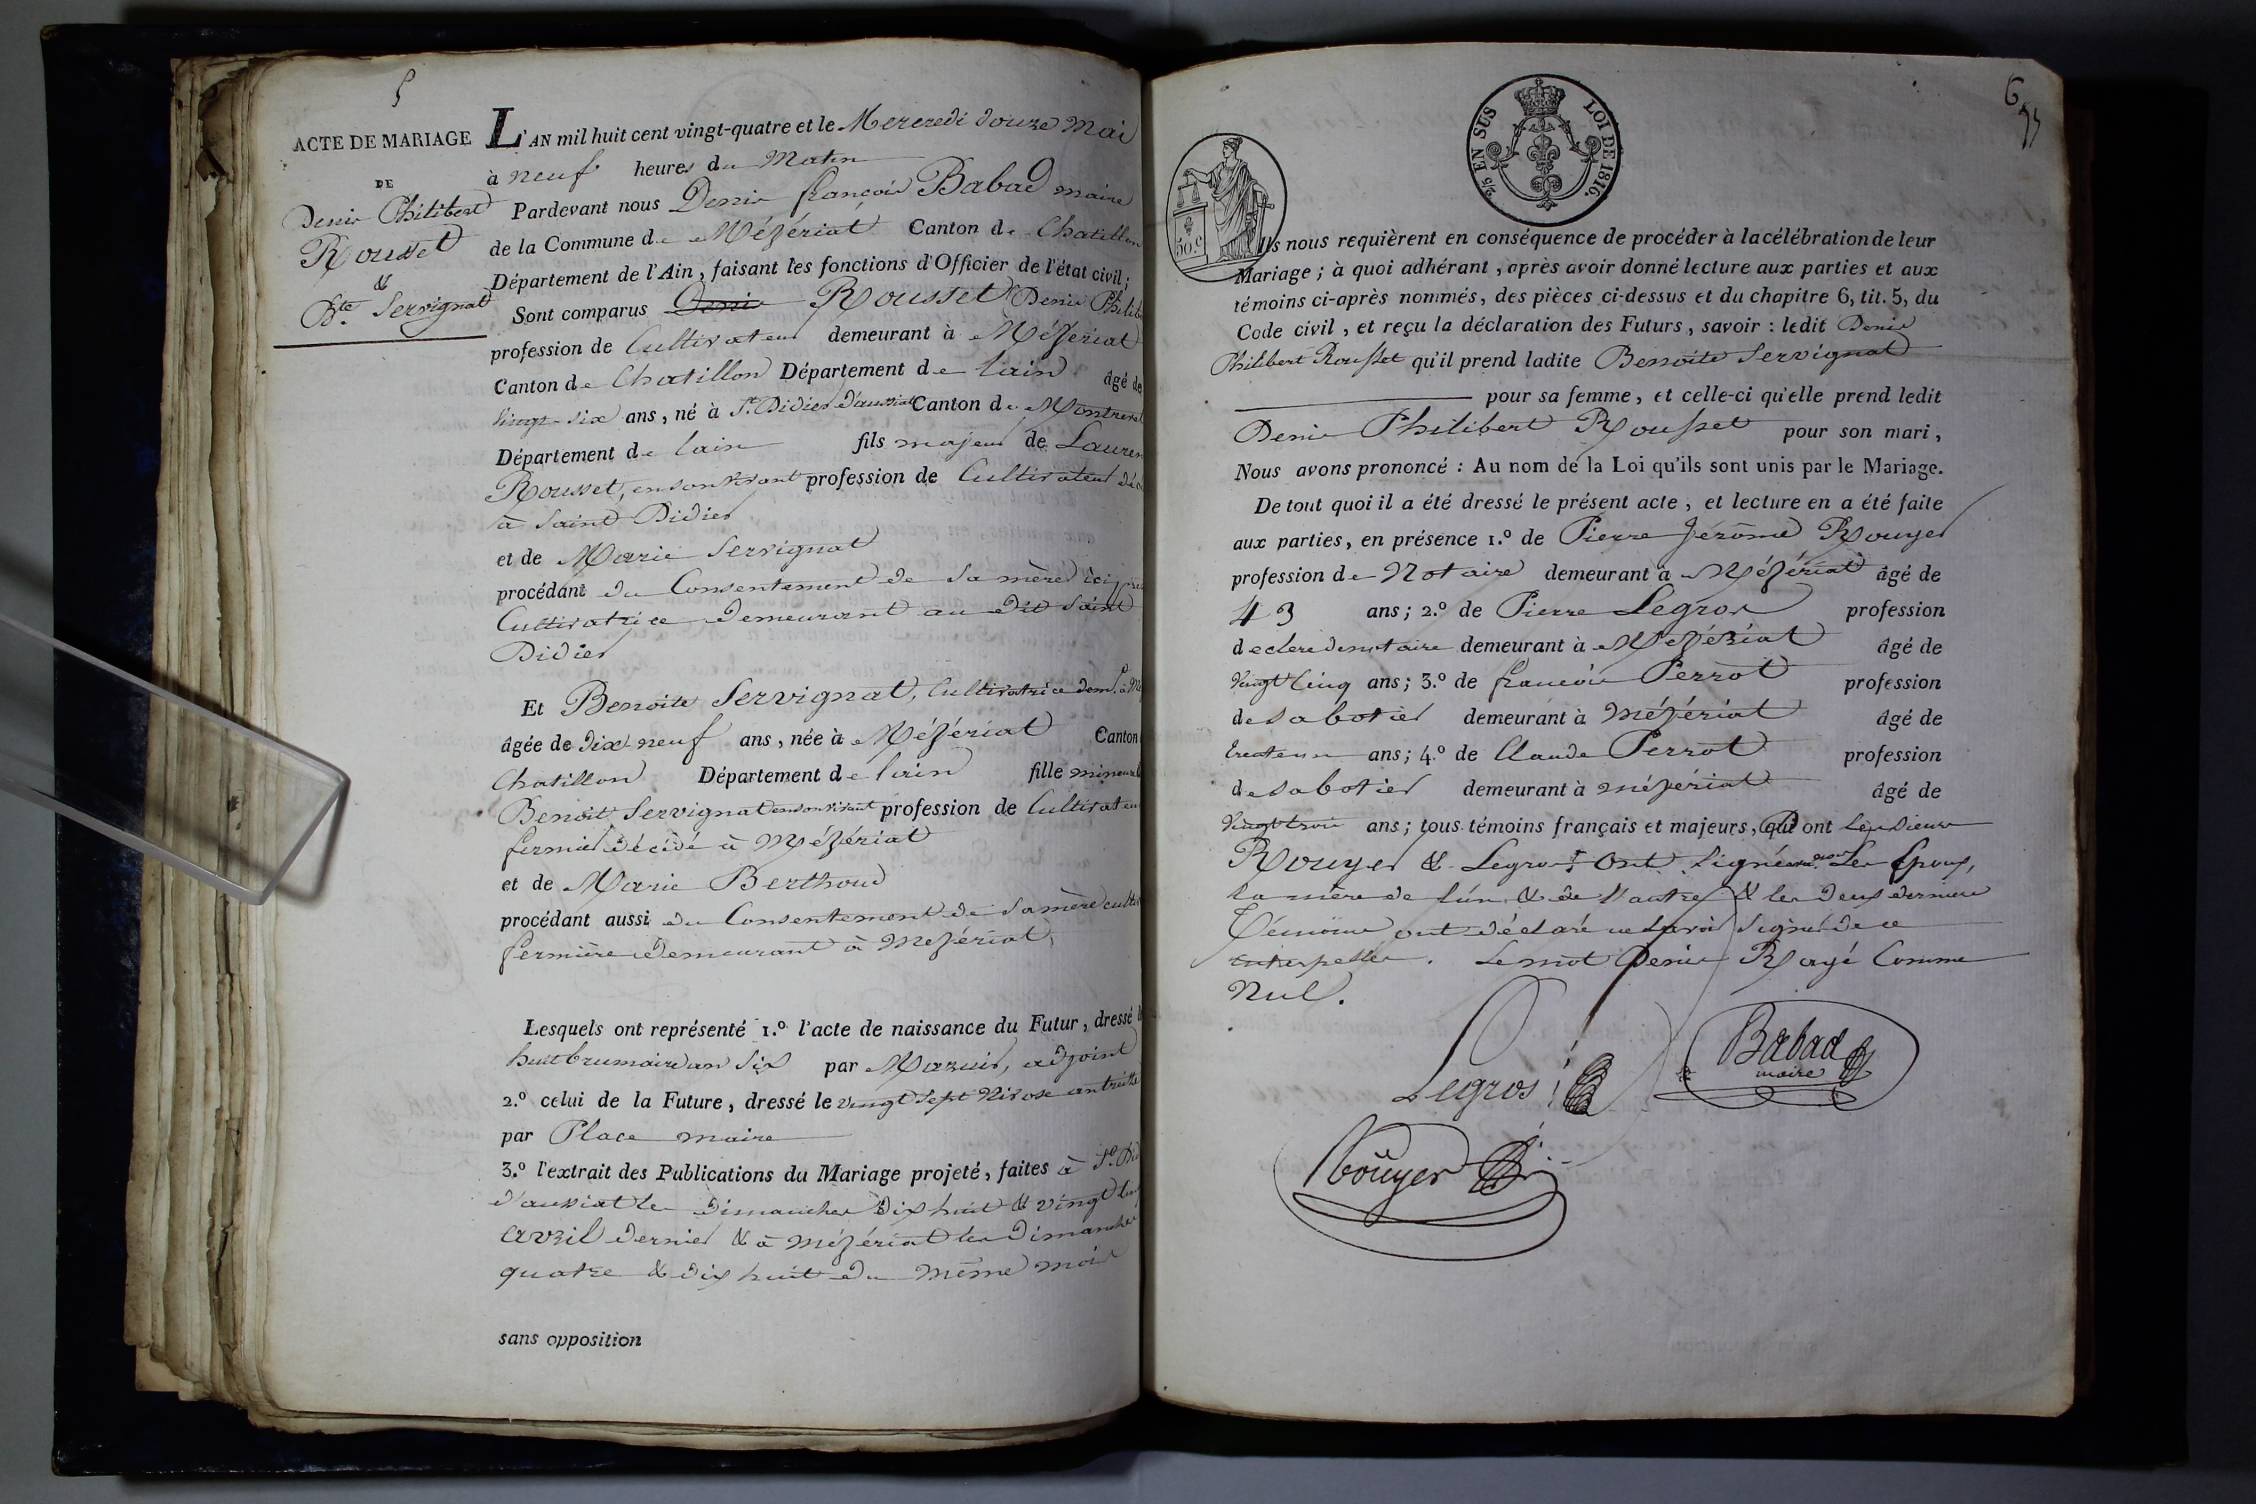 5
ACTE DE MARIAGE
DE
Denis Philibert
Rousset
&
Bte. Servignat
L'AN mil huit cent vingt-quatre et le Mercredi douze Mai
à neuf heures du Matin
Pardevant nous Denis françois Babad maire
de la Commune de Mézériat Canton de Chatillon
Département de l'Ain, faisant les fonctions d'Officier de l'état civil;
Sont comparus Denis Rousset Denis Philib
profession de Cultivateur demeurant à Mézériat
Canton de Chatillon Département de lain âgé de
vingt six ans, né à St. Didier d'aussiat Canton de Montrevel
Département de lain fils majeur de Lauren
Rousset, en son vivant profession de Cultivateur déc
à Saint Didier
et de Marie Servignat
procédant du Consentement de sa mère ici
Cultivatrice demeurant au dit Saint
Didier
Et Benoite Servignat, Cultivatrice demt. à Mé
âgée de Dix neuf ans, née à Mézériat Canton
Chatillon Département de lain fille mineure
Benoit Servignat en son vivant profession de Cultivateur
fermier décédé à Mézériat
et de Marie Berthoud
procédant aussi du Consentement de sa mère cultiv
fermière demeurant à Mezériat,
Lesquels ont représenté 1.º l'acte de naissance du Futur, dressé l
huit brumaire an Six par Mazuir, adjoint
2.º celui de la Future, dressé le vingt Sept Nivose an treitte
par Place maire
3.º l'extrait des Publications du Mariage projeté, faites à St. Did
d'aussiat les dimanches dix huit & vingt
avril dernier & à Mézériat les Dimanches
quatre & dix huit du même mois
sans opposition
6
30c
2/5 EN SUS LOI DE 1816.
Ils nous requièrent en conséquence de procéder à la célébration de leur
Mariage; à quoi adhérant, après avoir donné lecture aux parties et aux
témoins ci-après nommés, des pièces ci-dessus et du chapitre 6, tit. 5, du
Code civil, et reçu la déclaration des Futurs, savoir: ledit Denis
Philibert Rousset qu'il prend ladite Benoite Servignat
pour sa femme, et celle-ci qu'elle prend ledit
Denis Philibert Rousset pour son mari,
Nous avons prononcé: Au nom de la Loi qu'ils sont unis par le Mariage.
De tout quoi il a été dressé le présent acte, et lecture en a été faite
aux parties, en présence 1.º de Pierre Jérôme Rouyer
profession de Notaire demeurant à Mézériat âgé de
43 ans; 2.º de Pierre Legros profession
de clere de notaire demeurant à Mézériat âgé de
vingt Cinq ans; 3.º de françois Perrot profession
de sabotier demeurant à mézériat âgé de
trente un ans; 4.º de Claude Perrot profession
de sabotier demeurant à mézériat âgé de
vingt trois ans; tous témoins français et majeurs, Dont les Sieurs
Rouyer & Legros Ont Signé avec nous Les Epoux,
la mère de l'un & de l'autre & les deux derniers
Témoins ont déclaré ne savoir signer de ce
interpellés. Le mot Denis Rayé Comme
Nul.
Legros
Babad
maire
Roüyer